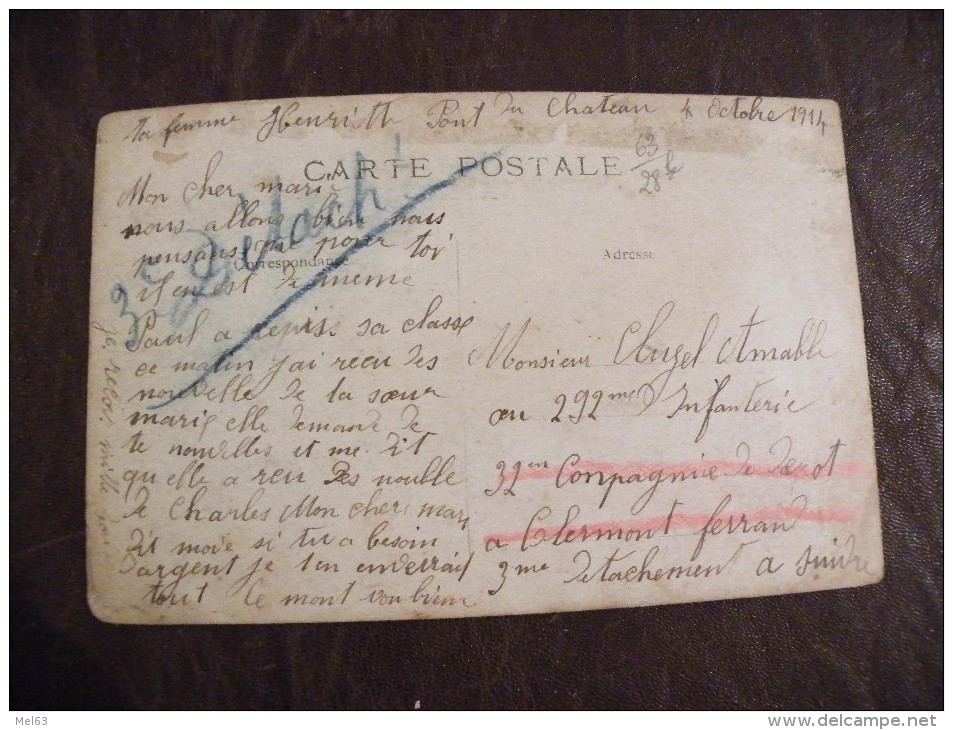 ta femme Henriette Pont du Chateau 4 octobre 1914
CARTE POSTALE
63
28
Mon cher mari
nous allons bien nous
pensans que pour toi
il en est de meme
Correspondance
Adresse
3e Detach
Paul a repris sa classe
ce matin j'ai recu des
nouvelle de la sœur
marie elle demande de
te nouvelles et me dit
qu elle a reu des nouvlle
de Charles Mon cher mari
dit moie si tu a besoin
argent je ten enverrait
tout le mont von bien
je recoi mille
Monsieur Cluzel Amable
au 292me D Infanterie
32em Conpagnie de depot
a Clermont ferrand
3me detachement a suivre
Mel63
www.delcampe.net